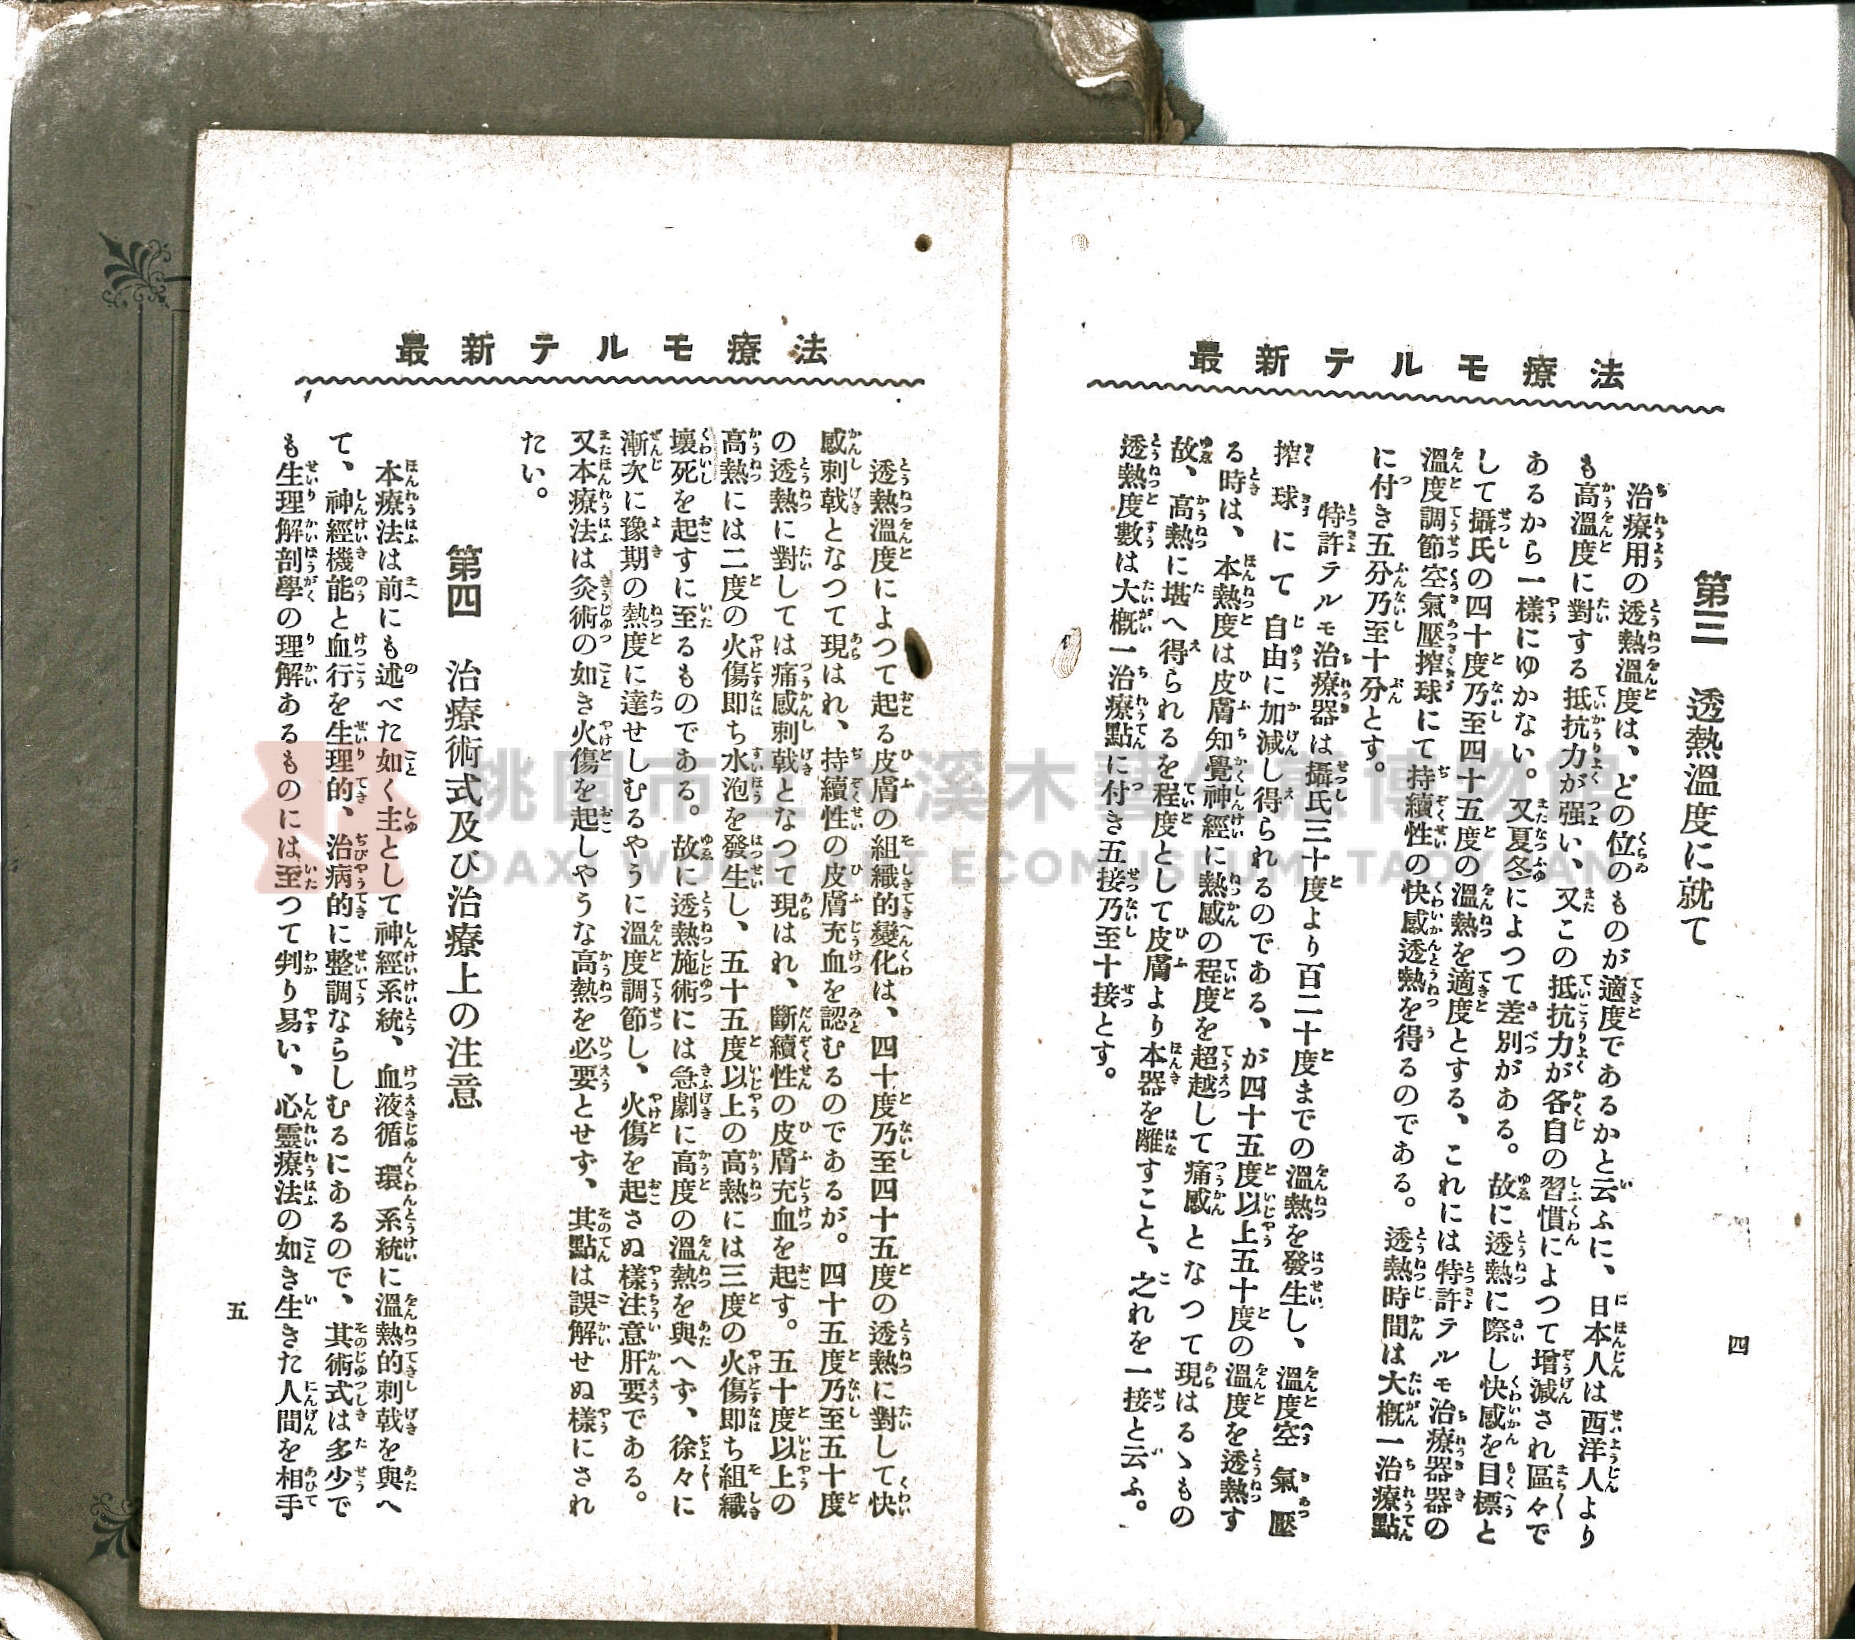 最新テルモ療法
第三 透熱溫度に就て
治療用の透熱溫度は、どの位のものが適度であるかと云ふに、日本人は西洋人より
も高溫度に對する抵抗力が强い、又この抵抗力が各自の習慣によつて增減され區々で
あるから一樣にゆかない。又夏冬によつて差別がある。故に透熱に際し快感を目標と
して攝氏の四十度乃至四十五度の溫熱を適度とする、これには特許テルモ治療器器の
溫度調節空氣壓搾球にて持續性の快感透熱を得るのである。透熱時間は大槪一治療點
に付き五分乃至十分とす。
特許テルモ治療器は攝氏三十度より百二十度までの溫熱を發生し、溫度空氣壓
搾球にて自由に加減し得られるのである、が四十五度以上五十度の溫度を透熱す
る時は、本熱度は皮膚知覺神經に熱感の程度を超越して痛感となつて現はるゝもの
故、高熱に堪へ得られるを程度として皮膚より本器を離すこと、之れを一接と云ふ。
透熱度數は大槪一治療點に付き五接乃至十接とす。
四
最新テルモ療法
透熱溫度によつて起る皮膚の組織的變化は、四十度乃至四十五度の透熱に對して快
感刺戟となつて現はれ、持續性の皮膚充血を認むるのであるが。四十五度乃至五十度
の透熱に對しては痛感刺戟となつて現はれ、斷續性の皮膚充血を起す。五十度以上の
高熱には二度の火傷卽ち水泡を發生し、五十五度以上の高熱には三度の火傷卽ち組織
壞死を起すに至るものである。故に透熱施術には急劇に高度の溫熱を與へず、徐々に
漸次に豫期の熱度に達せしむるやうに溫度調節し、火傷を起さぬ樣注意肝要である。
又本療法は灸術の如き火傷を起しやうな高熱を必要とせず、其點は誤解せぬ樣にされ
たい。
第四 治療術式及び治療上の注意
本療法は前にも述べた如く主として神經系統、血液循環系統に溫熱的刺戟を與へ
て、神經機能と血行を生理的、治病的に整調ならしむるにあるので、其術式は多少で
も生理解剖學の理解あるものには至つて判り易い、心靈療法の如き生きた人間を相手
五
桃園市立大溪木藝生態博物館
DAXI WOOD ART ECOMUSEUM, TAOYUAN